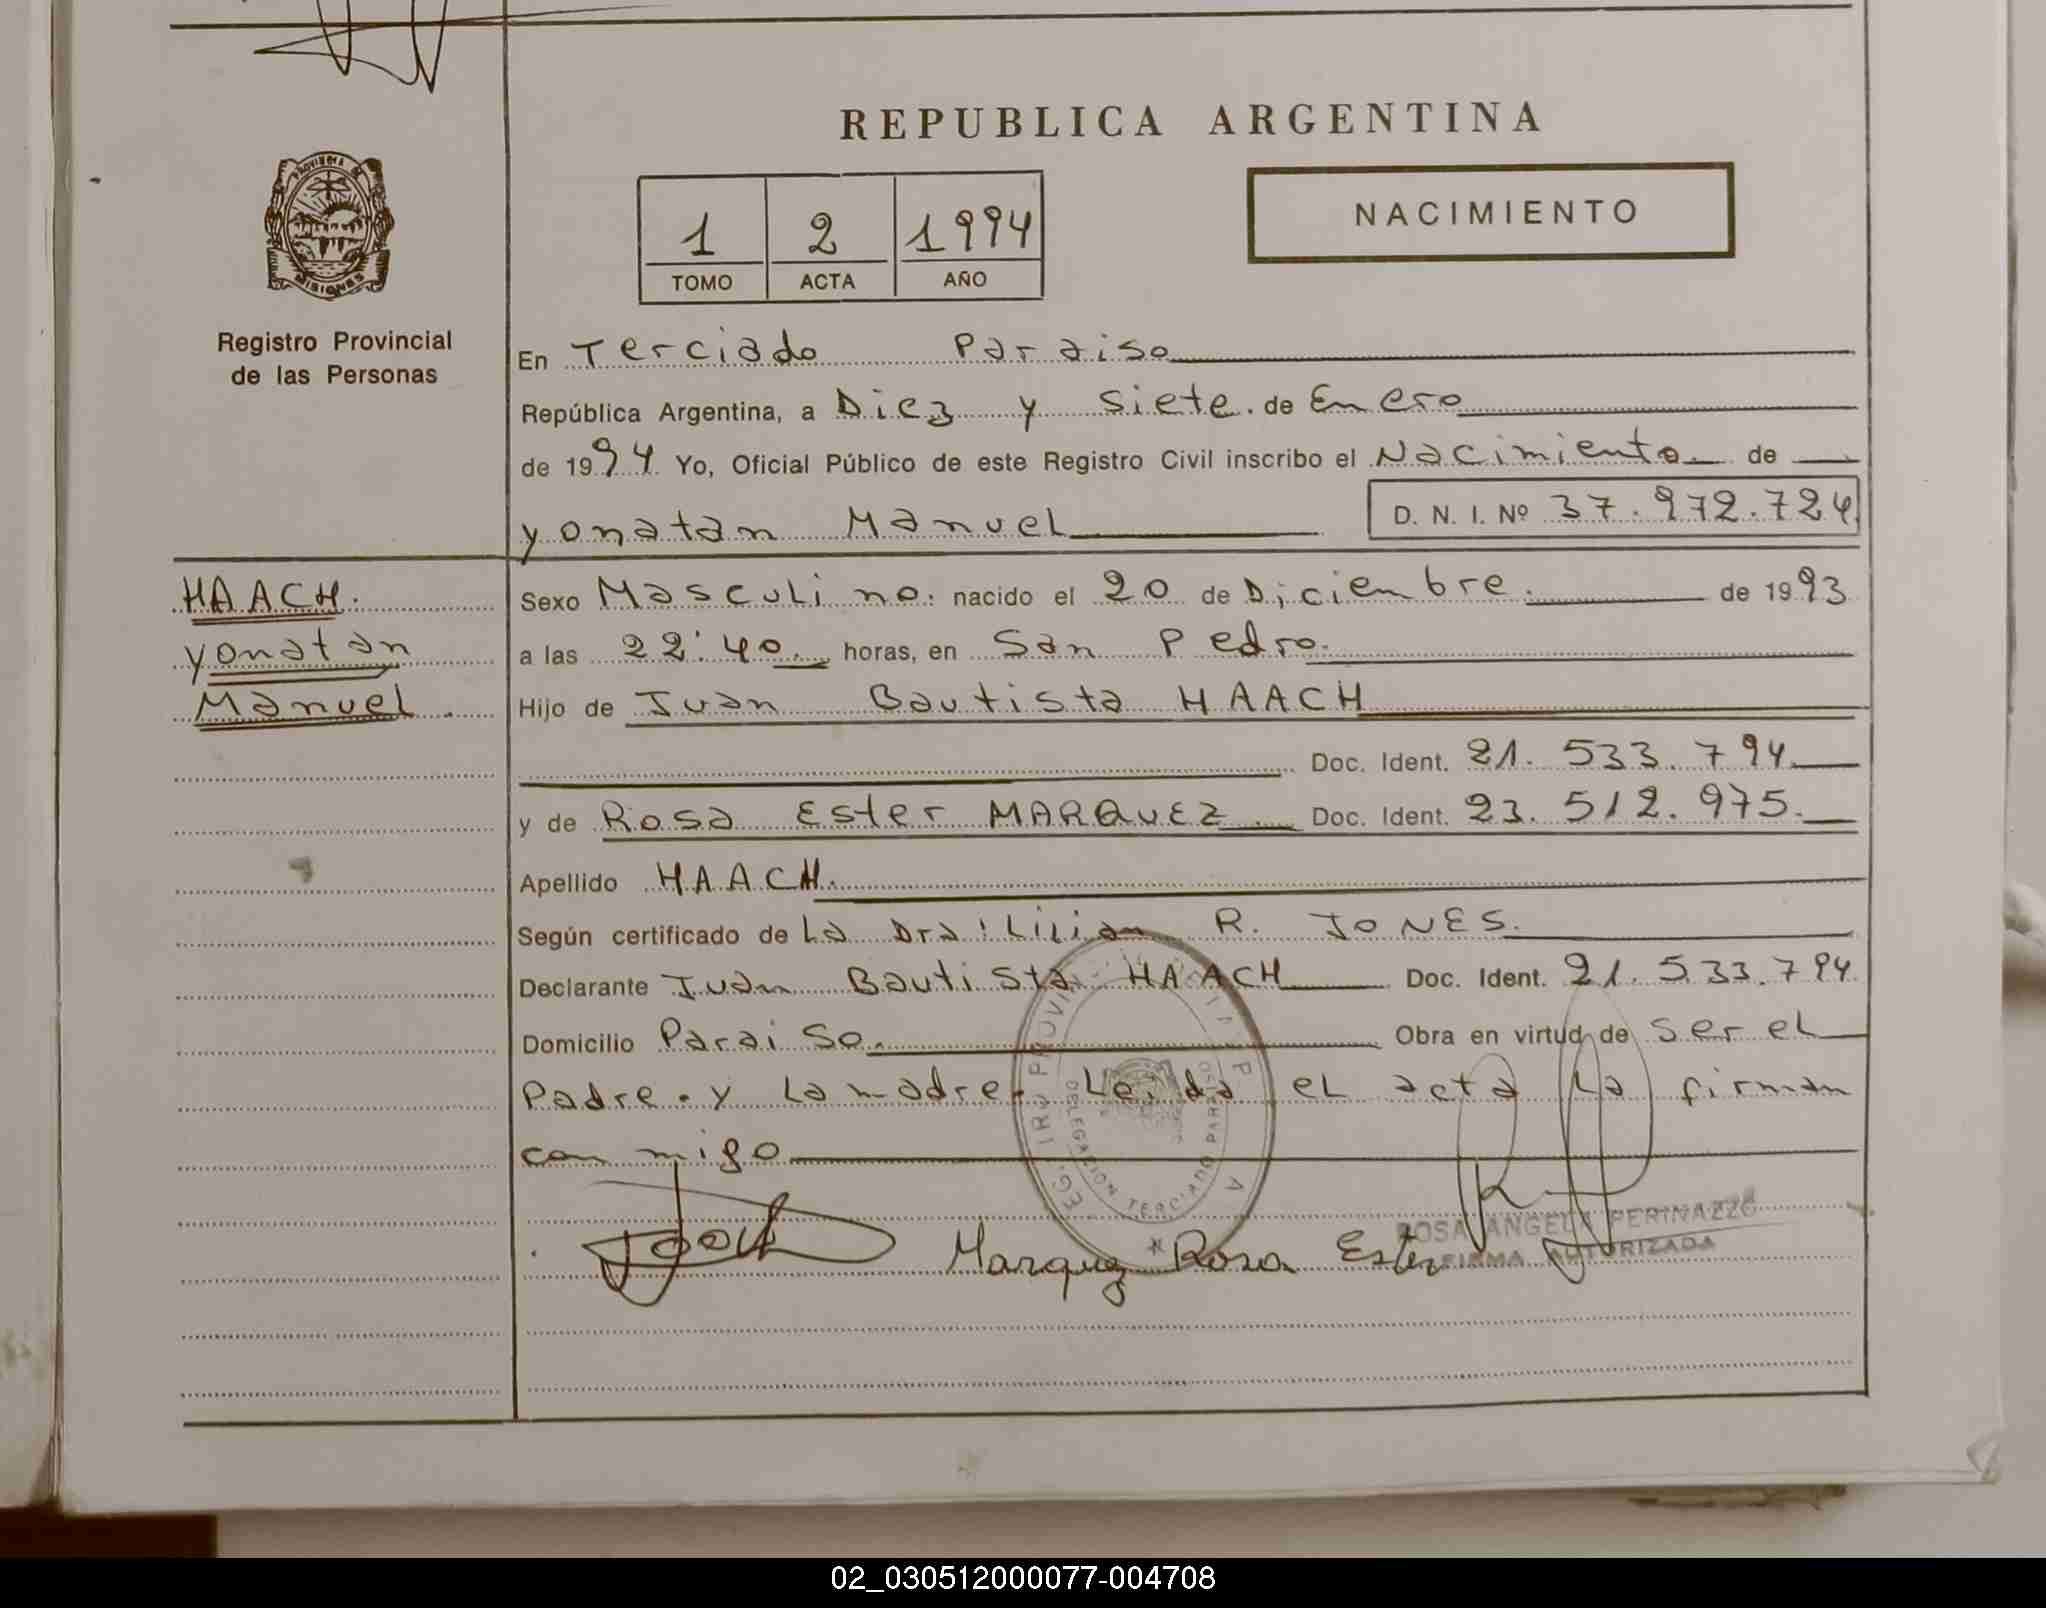 REPUBLICA ARGENTINA
PROVINCIA DE
MISIONES
Registro Provincial
de las Personas
1 2 1994
TOMO ACTA AÑO
NACIMIENTO
En Terciado Paraiso
República Argentina, a Diez y siete. de Enero
de 1994 Yo, Oficial Público de este Registro Civil inscribo el Nacimiento de
yonatan Manuel D. N. I. Nº 37.972.724
HAACH.
yonatan
Manuel.
Sexo Masculino. nacido el 20 de Diciembre. de 1993
a las 22:40. horas, en San Pedro.
Hijo de Juan Bautista HAACH
Doc. Ident. 21.533.794.
y de Rosa Ester MARQUEZ Doc. Ident. 23.512.975.
Apellido HAACH.
Según certificado de La Dra: Lilian R. JONES.
Declarante Juan Bautista HAACH Doc. Ident. 21.533.794.
Domicilio Paraiso. Obra en virtud de ser el
Padre. y La madre. Leida el acta La firman
con migo
DELEGACION TERCIADO PARAISO
Marquez Rosa Ester
ROSA ANGELA PERINAZZO
FIRMA AUTORIZADA
02_030512000077-004708